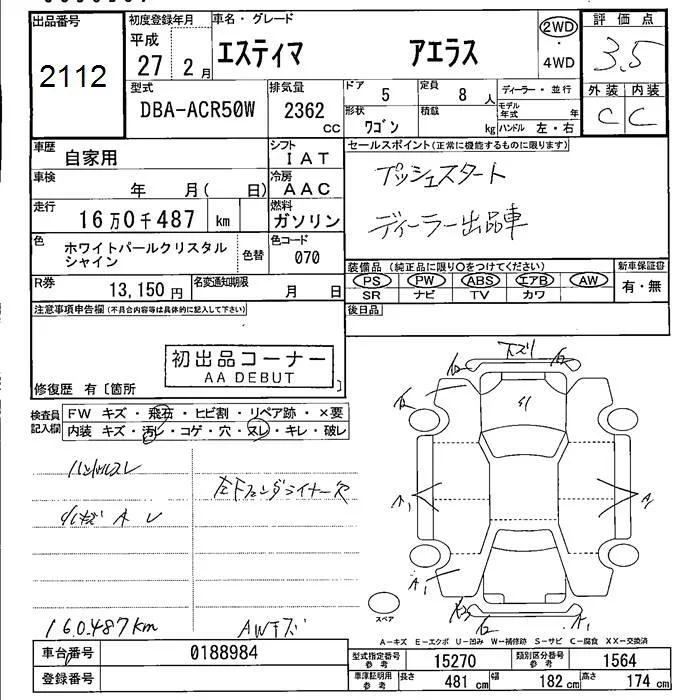 出品番号
2112
初度登録年月
平成
27 2月
車名・グレード
エスティマ アエラス
2WD
・
4WD
評価点
3.5
外装 内装
C C
型式
DBA-ACR50W
排気量
2362
CC
ドア 5
定員 8 人
形状
ワゴン
積載
kg
ディーラー・並行
モデル年式 年
ハンドル 左・右
車歴
自家用
シフト
I A T
車検
年 月( 日)
冷房
A A C
走行
16万0千487 km
燃料
ガソリン
色
ホワイトパールクリスタル
シャイン
色替
色コード
070
R券
13,150 円
名変通知期限
月 日
セールスポイント(正常に機能するものに限ります)
プッシュスタート
ディーラー出品車
装備品(純正品に限り○をつけてください)
PS PW ABS エアB AW
SR ナビ TV カワ
新車保証書
有・無
後日品
注意事項申告欄(不具合内容等は具体的に記入して下さい)
初出品コーナー
AA DEBUT
修復歴 有〔箇所 〕
検査員
記入欄
FW キズ・飛石・ヒビ割・リペア跡・×要
内装 キズ・汚レ・コゲ・穴・ヌレ・キレ・破レ
ハンドルスレ
左Fフェンダライナー欠
160.487km
AWキズ
スペア
A-キズ E-エクボ U-凹み W-補修跡 S-サビ C-腐食 XX-交換済
車台番号
0188984
登録番号
型式指定番号
参考
15270
類別区分番号
参考
1564
車庫証明用
参考
長さ 481 cm 幅 182 cm 高さ 174 cm